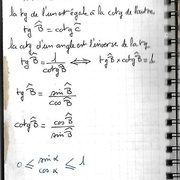 la tg de l'un est égale à la cotg de l'autre
tg B̂ = cotg Ĉ
la cotg d'un angle est l'inverse de la tg.
tg B̂ = 1 / cotg B̂ ⟺ tg B̂ × cotg B̂ = 1
tg B̂ = sin B̂ / cos B̂
cotg B̂ = cos B̂ / sin B̂
0 ≤ sin α / cos α ≤ 1